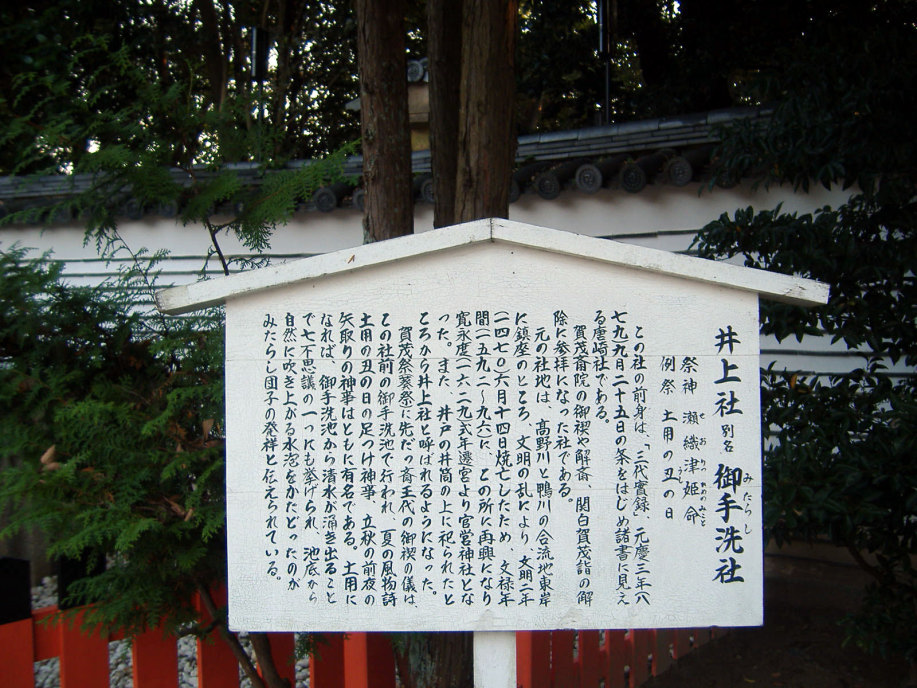 井上社 別名 御手洗社
みたらし
祭神 瀬織津姫命
せ おりつ ひめのみこと
例祭 土用の丑の日
うし
この社の前身は、「三代實録」元慶三年(八
七九)九月二十五日の条をはじめ諸書に見え
る唐崎社である。
賀茂斎院の御禊や解斎、関白賀茂詣の解
除に参拝になった社である。
元の社地は、髙野川と鴨川の合流地東岸
に鎮座のところ、文明の乱により文明二年
(一四七〇)六月十四日焼亡したため、文禄年
間(一五九二~九六)に、この所に再興にな
った。また、井戸の井筒の上に祀られたと
ころから井上社と呼ばれるようになった。
寛永度(一六二九)式年遷宮より官営神社となり
賀茂祭(葵祭)に先だつ斎王代の御禊の儀は、
この社前の御手洗池で行われ、夏の風物詩
土用の丑の日の足つけ神事、立秋の前夜の
矢取りの神事はともに有名である。土用に
なれば、御手洗池から清水が湧き出ること
で七不思議の一つにも挙げられ、池底から
自然に吹き上がる水泡をかたどったのが
みたらし団子の発祥と伝えられている。